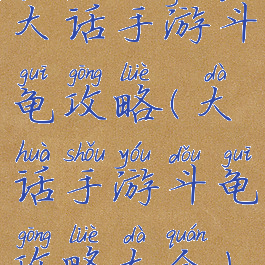 大话手游斗
guī gōng lüè dà
龟攻略(大
huà shǒu yóu dǒu guī
话手游斗龟
gōng lüè dà quán
攻略大全)